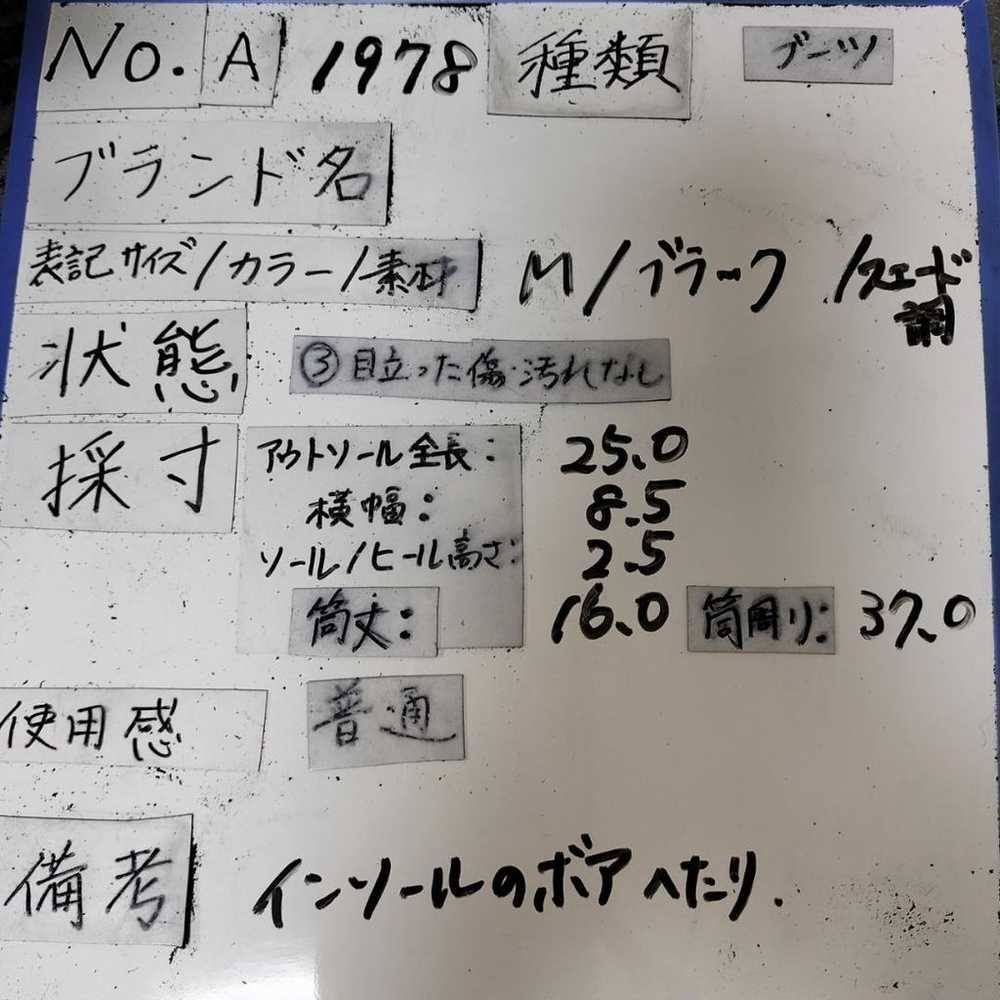 No. A 1978 種類 ブーツ
ブランド名
表記サイズ/カラー/素材 M/ブラック/スエード調
状態 ③目立った傷・汚れなし
採寸 アウトソール全長: 25.0
横幅: 8.5
ソール/ヒール高さ: 2.5
筒丈: 16.0 筒周り: 37.0
使用感 普通
備考 インソールのボアへたり.